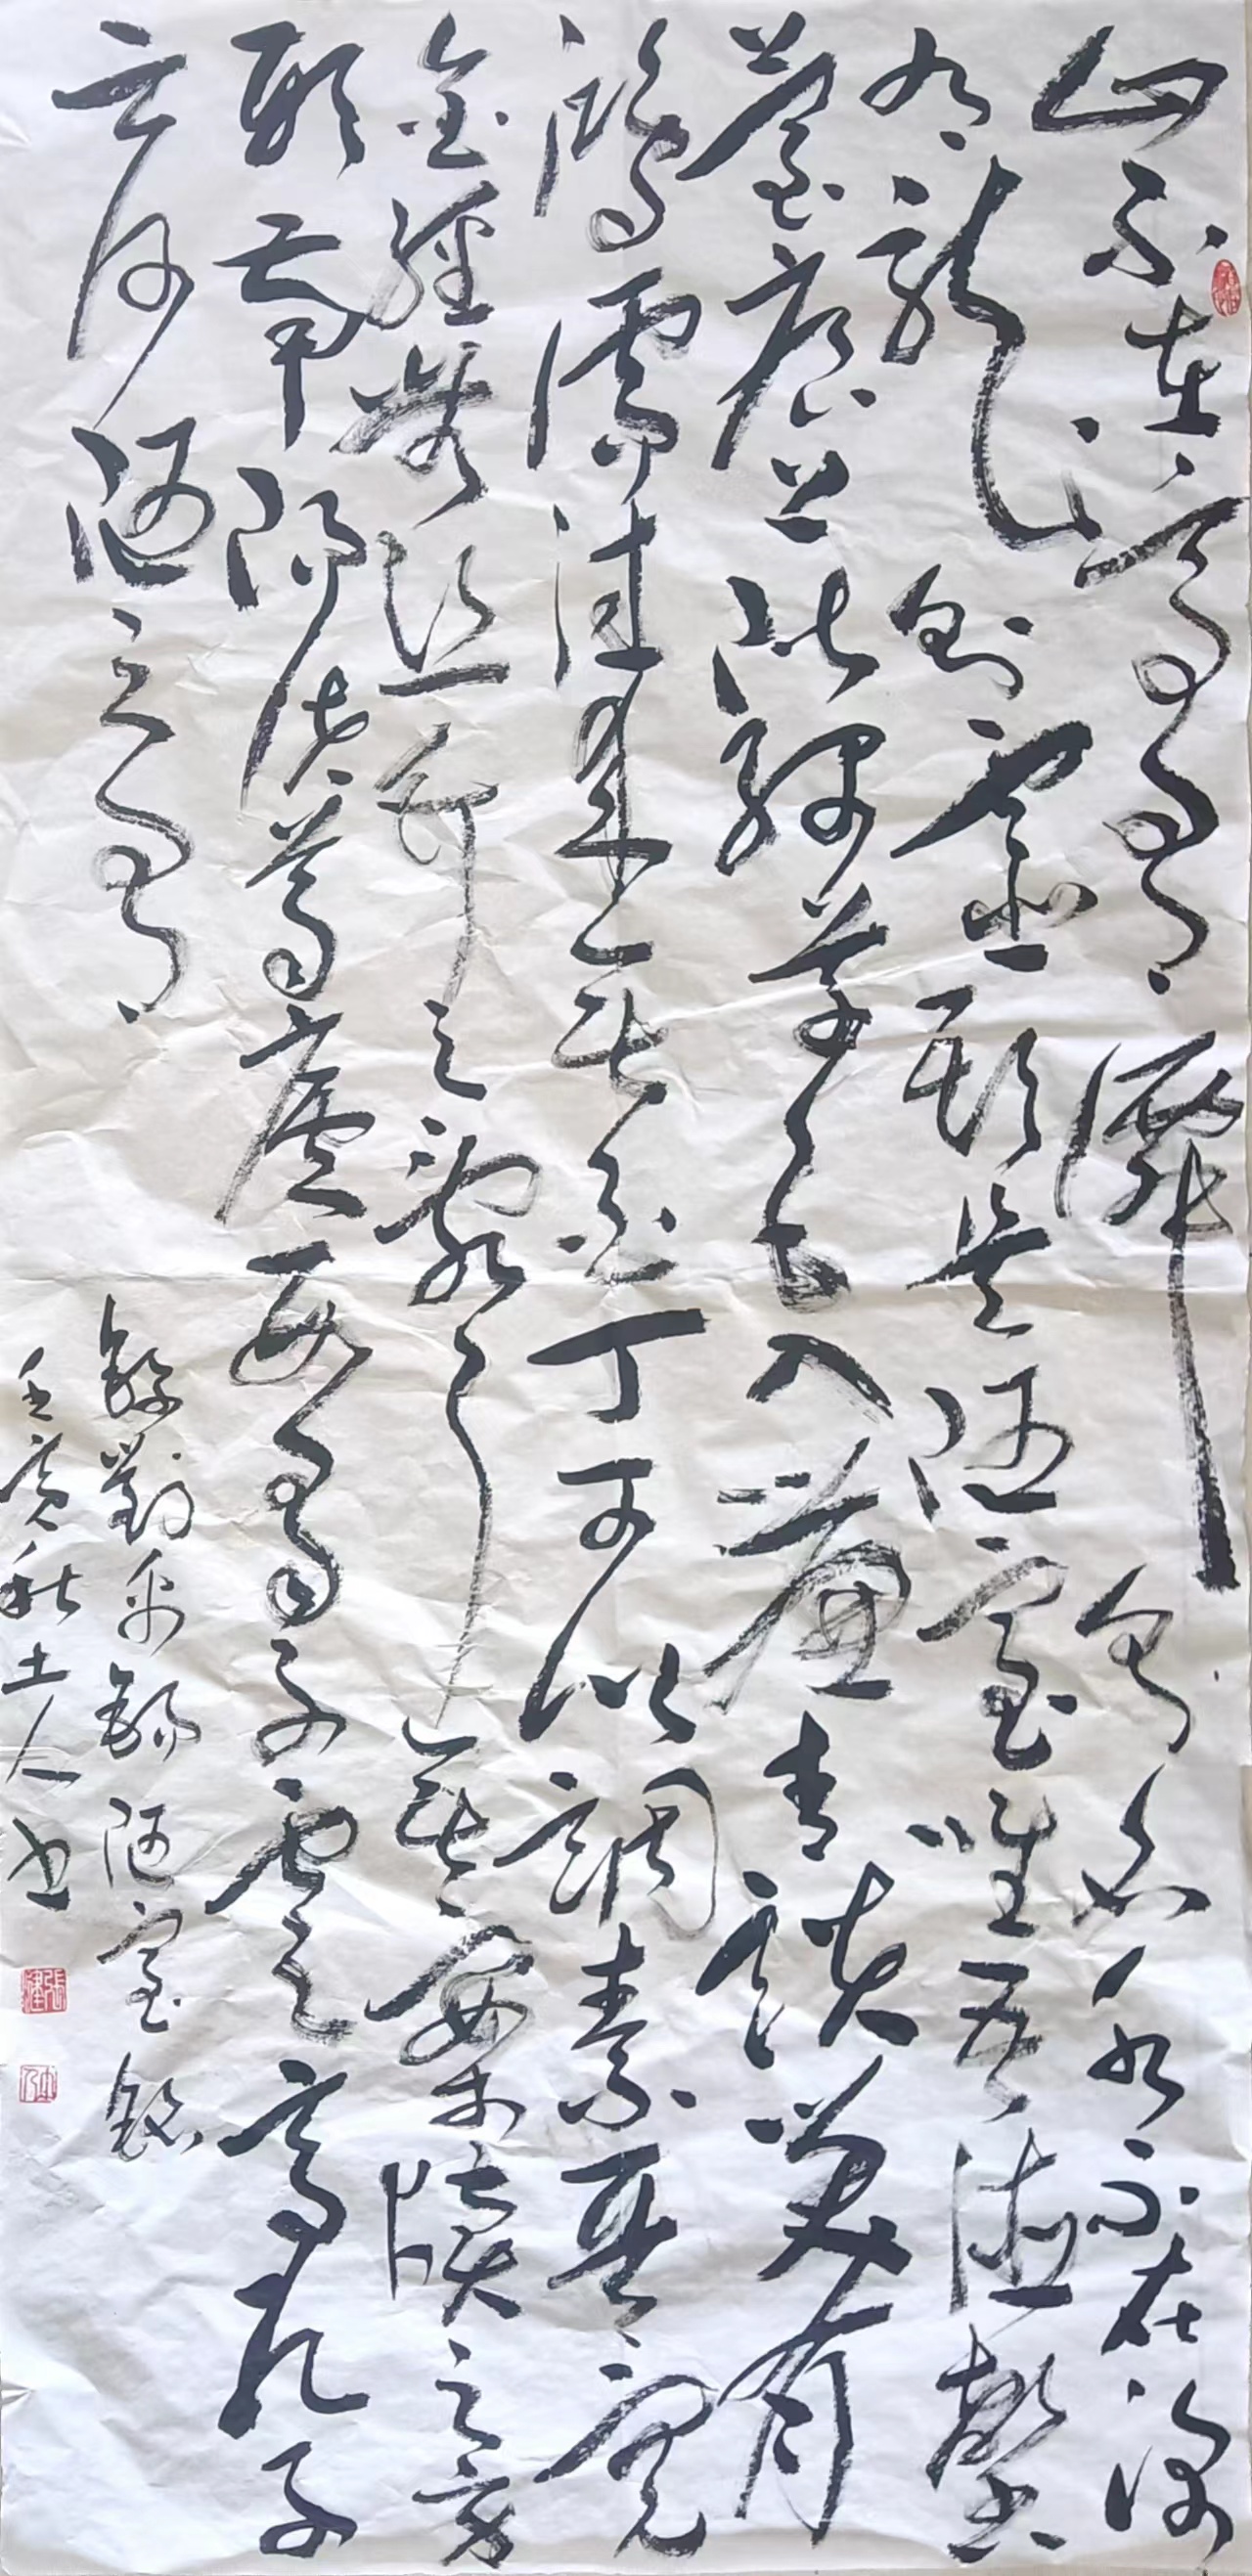 山不在高有僊則名水不在深
有龍則靈斯是陋室唯吾德馨
苔痕上階綠草色入簾青談笑有
鴻儒往來無白丁可以調素琴閱
金經無絲竹之亂耳無案牘之勞
形南陽諸葛廬西蜀子雲亭孔子
云何陋之有
錄劉禹錫陋室銘
壬寅秋土人书